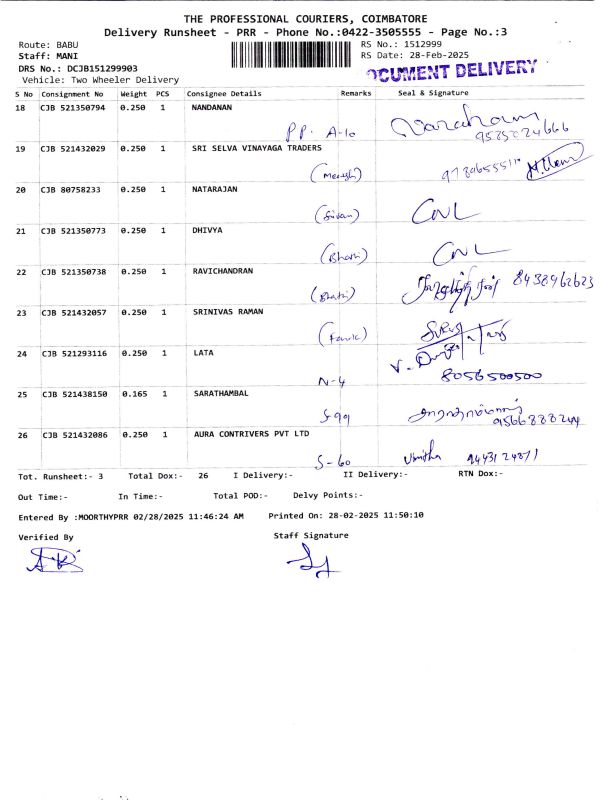 THE PROFESSIONAL COURIERS, COIMBATORE
Delivery Runsheet - PRR - Phone No.:0422-3505555 - Page No.:3
Route: BABU RS No.: 1512999
Staff: MANI RS Date: 28-Feb-2025
DRS No.: DCJB151299903
Vehicle: Two Wheeler Delivery
OCUMENT DELIVERY
S No Consignment No Weight PCS Consignee Details Remarks Seal & Signature
18 CJB 521350794 0.250 1 NANDANAN
PP. A-10
19 CJB 521432029 0.250 1 SRI SELVA VINAYAGA TRADERS
20 CJB 80758233 0.250 1 NATARAJAN
(Sivan)
21 CJB 521350773 0.250 1 DHIVYA
22 CJB 521350738 0.250 1 RAVICHANDRAN
8438962623
23 CJB 521432057 0.250 1 SRINIVAS RAMAN
24 CJB 521293116 0.250 1 LATA
N-4 8056500500
25 CJB 521438150 0.165 1 SARATHAMBAL
S-99
26 CJB 521432086 0.250 1 AURA CONTRIVERS PVT LTD
S-60
Tot. Runsheet:- 3 Total Dox:- 26 I Delivery:- II Delivery:- RTN Dox:-
Out Time:- In Time:- Total POD:- Delvy Points:-
Entered By :MOORTHYPRR 02/28/2025 11:46:24 AM Printed On: 28-02-2025 11:50:10
Verified By Staff Signature